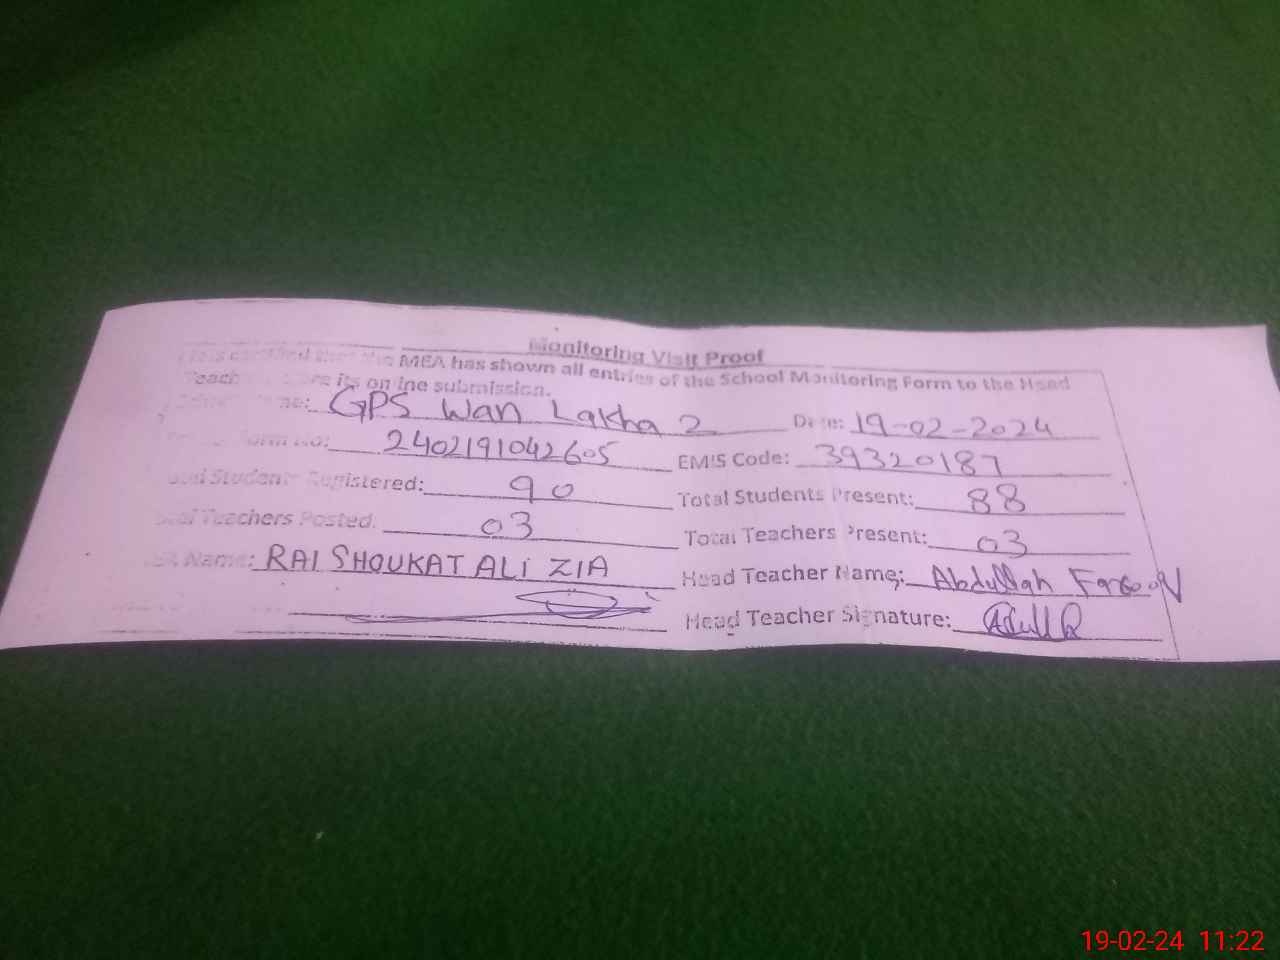 Monitoring Visit Proof
certified that the MEA has shown all entries of the School Monitoring Form to the Head
its on ine submission.
GPS Wan Lakha 2 Date: 19-02-2024
Form No: 2402191042605 EMIS Code: 39320187
Students Registered: 90 Total Students Present: 88
Teachers Posted: 03 Total Teachers Present: 03
Name: RAI SHOUKAT ALI ZIA Head Teacher Name: Abdullah Farooq
Head Teacher Signature:
19-02-24 11:22